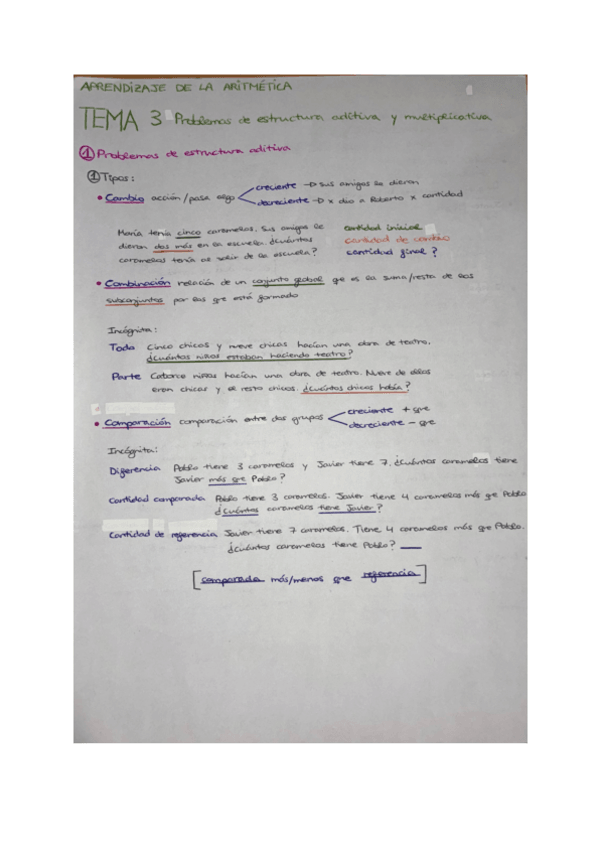 APRENDIZAJE DE LA ARITMÉTICA
TEMA 3 Problemas de estructura aditiva y multiplicativa
① Problemas de estructura aditiva
① Tipos:
• Cambio acción/pasa algo
creciente → sus amigos le dieron
decreciente → x dio a Roberto x cantidad
María tenía cinco caramelos. Sus amigos le
dieron dos más en la escuela. ¿Cuántos
caramelos tenía al salir de la escuela?
cantidad inicial
cantidad de cambio
cantidad final?
• Combinación relación de un conjunto global que es la suma/resta de los
subconjuntos por los que está formado
Incógnita:
Todo Cinco chicas y nueve chicas hacían una obra de teatro.
¿Cuántos niños estaban haciendo teatro?
Parte Catorce niños hacían una obra de teatro. Nueve de ellos
eran chicas y el resto chicos. ¿Cuántos chicos había?
• Comparación comparación entre dos grupos
creciente + que
decreciente - que
Incógnita:
Diferencia Pablo tiene 3 caramelos y Javier tiene 7. ¿Cuántos caramelos tiene
Javier más que Pablo?
Cantidad comparada Pablo tiene 3 caramelos. Javier tiene 4 caramelos más que Pablo
¿Cuántos caramelos tiene Javier?
Cantidad de referencia Javier tiene 7 caramelos. Tiene 4 caramelos más que Pablo.
¿Cuántos caramelos tiene Pablo?
[comparada más/menos que referencia]